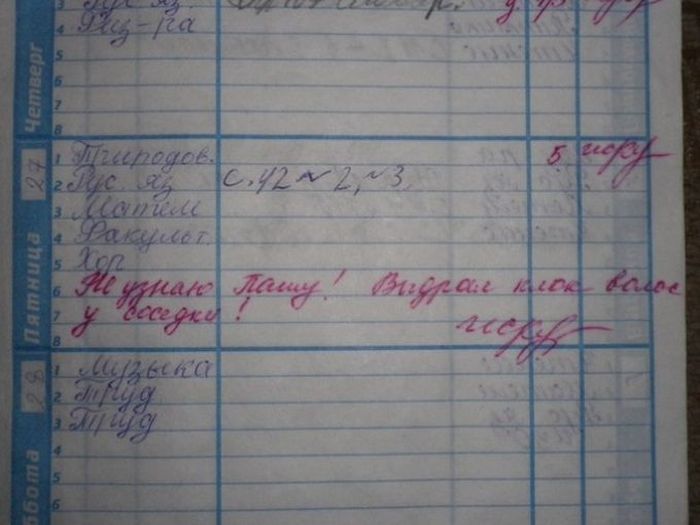 3 Рус. яз.
4 Физ-ра
5
6
7
8
Четверг
27
Пятница
1 Природов. 5
2 Рус. яз с. 42 № 2, № 3
3 Матем
4 Факульт.
5 Хор
6 Не узнаю Пашу! Выдрал клок волос
7 у соседки!
8
28
Суббота
1 Музыка
2 Труд
3 Труд
4
5
6